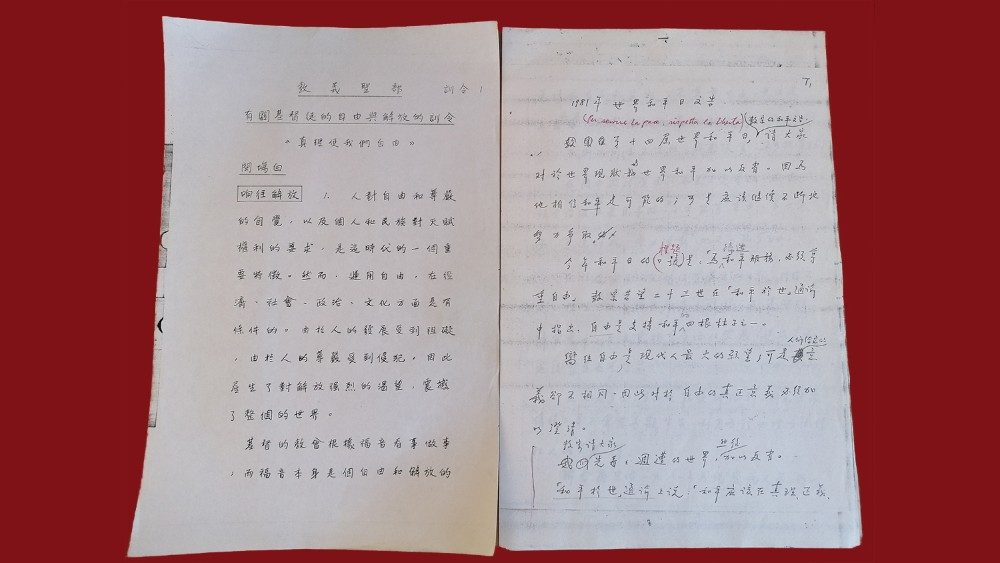 教義聖部 訓令 1
有關基督徒的自由與解放的訓令
《真理使我們自由》
開場白
响往解放 1. 人對自由和尊嚴
的自覺，以及個人和民族對天賦
權利的要求，是這時代的一個重
要特徵。然而，運用自由，在經
濟、社會、政治、文化方面是有
條件的。由於人的發展受到阻礙
，由於人的尊嚴受到侵犯，因此
產生了對解放強烈的渴望，震撼
了整個的世界。
基督的教會根據福音看事做事
，而福音本身是個自由和解放的
1981年世界和平日文告
Per servire la pace, rispetta la libertà
第十四屆世界和平日，請大家
對於世界現狀 世界和平加以反省。因為
他相信和平是可能的；可是應該繼續不斷地
努力爭取
標題
今年和平日的 是，為和平服務，必須尊
重自由。教宗若望二十三世在「和平於世」通諭
中指出，自由是支持和平的四根柱子之一。
嚮往自由，是現代人最大的願望，可是 意
義卻不相同，因此對於自由的真正意義必須加
以澄清。
教宗請大家
先看，週遭的世界，加以反省。
「和平於世」通諭上說：「和平應該在真理、正義、